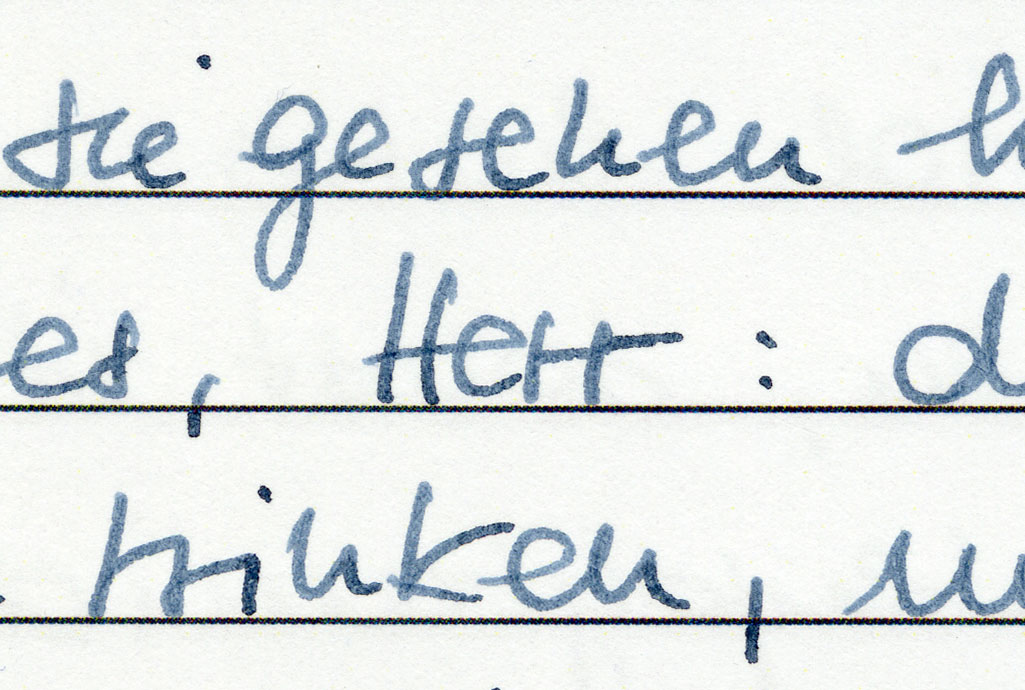 sie gesehen
es, Herr :
trinken,